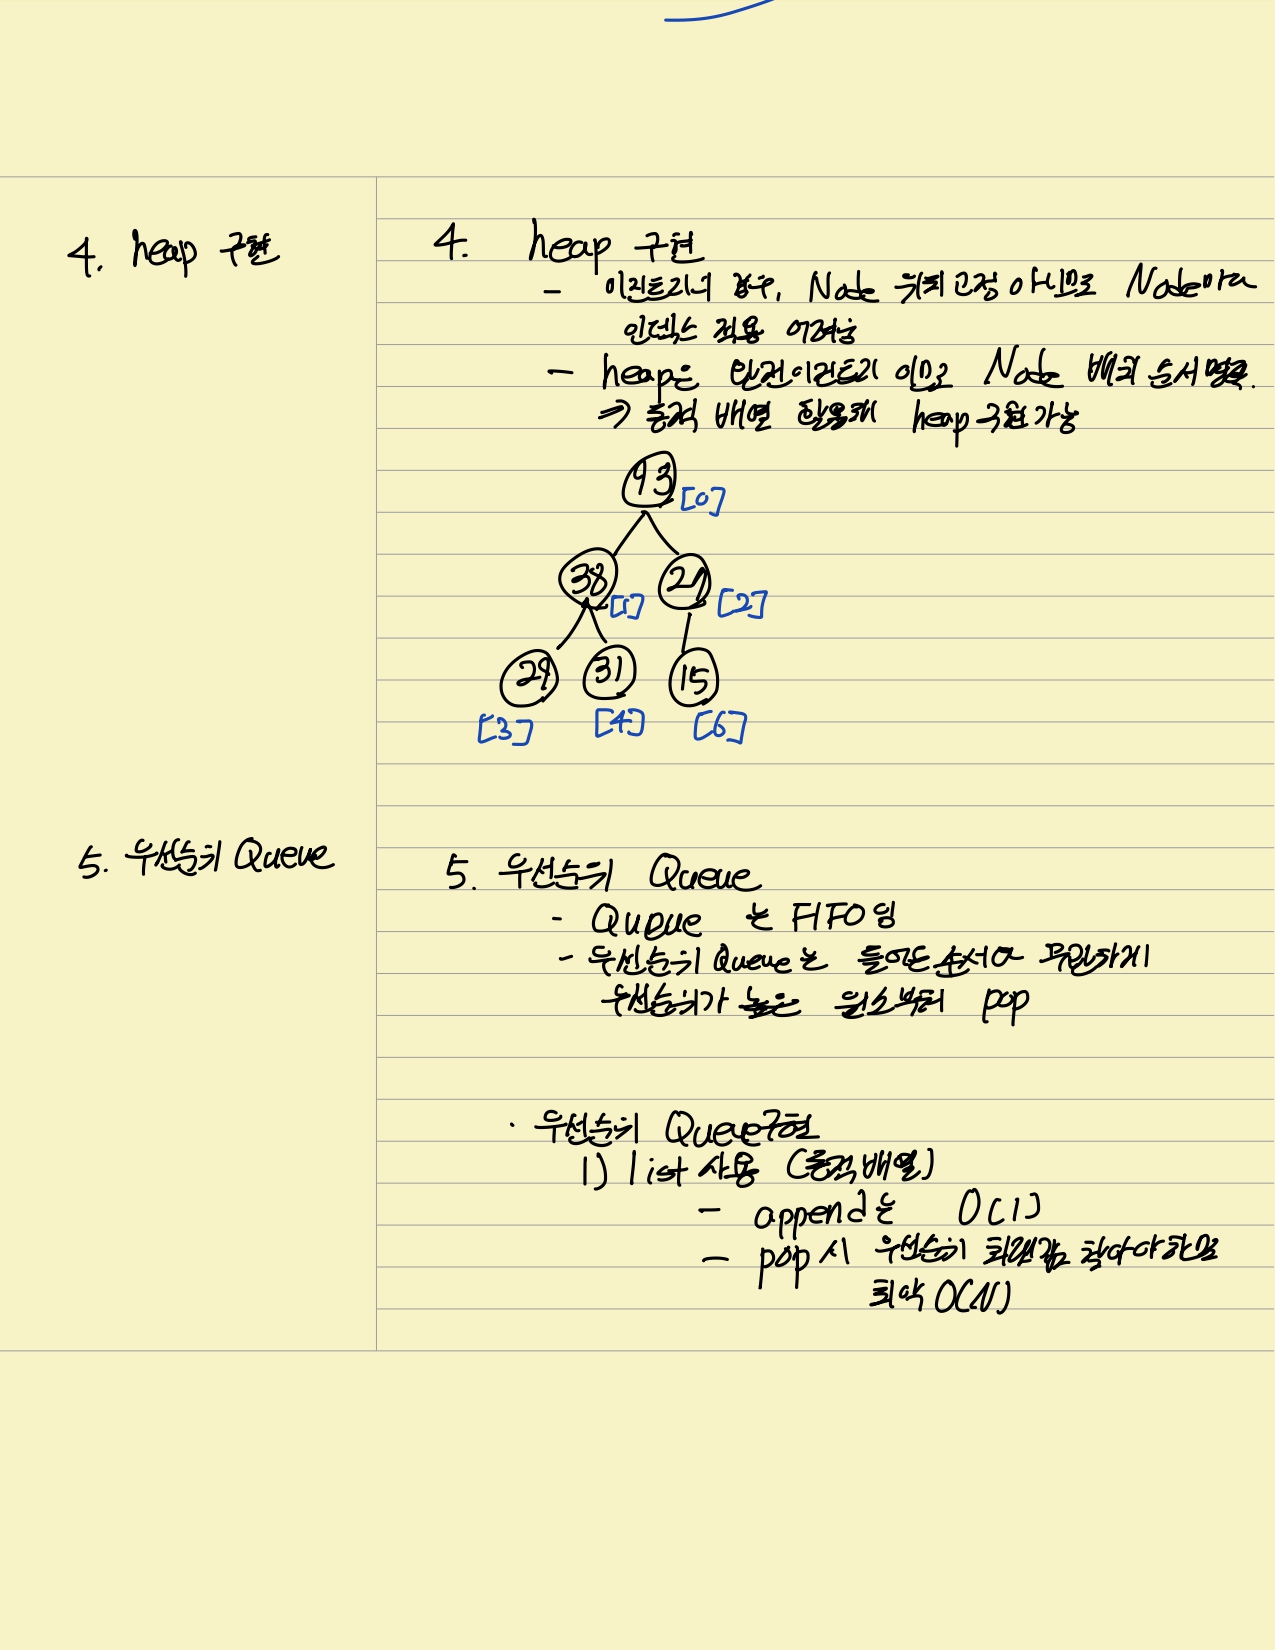 4. heap 구현
4. heap 구현
- 이진트리의 경우, Node 위치 고정 아니므로 Node마다
인덱스 적용 어려움
- heap은 완전이진트리 이므로 Node 배치 순서
⇒ 동적 배열 활용해 heap 구현 가능
93 [0]
38 [1] [2]
29 31 15
[3] [4] [6]
5. 우선순위 Queue
5. 우선순위 Queue
- Queue 는 FIFO임
- 우선순위 Queue는 들어온 순서와 무관하게
우선순위가 높은 원소부터 pop
· 우선순위 Queue구현
1) list 사용 (동적배열)
- append는 O(1)
- pop시 우선순위 최대값 찾아야하므로
최악 O(N)